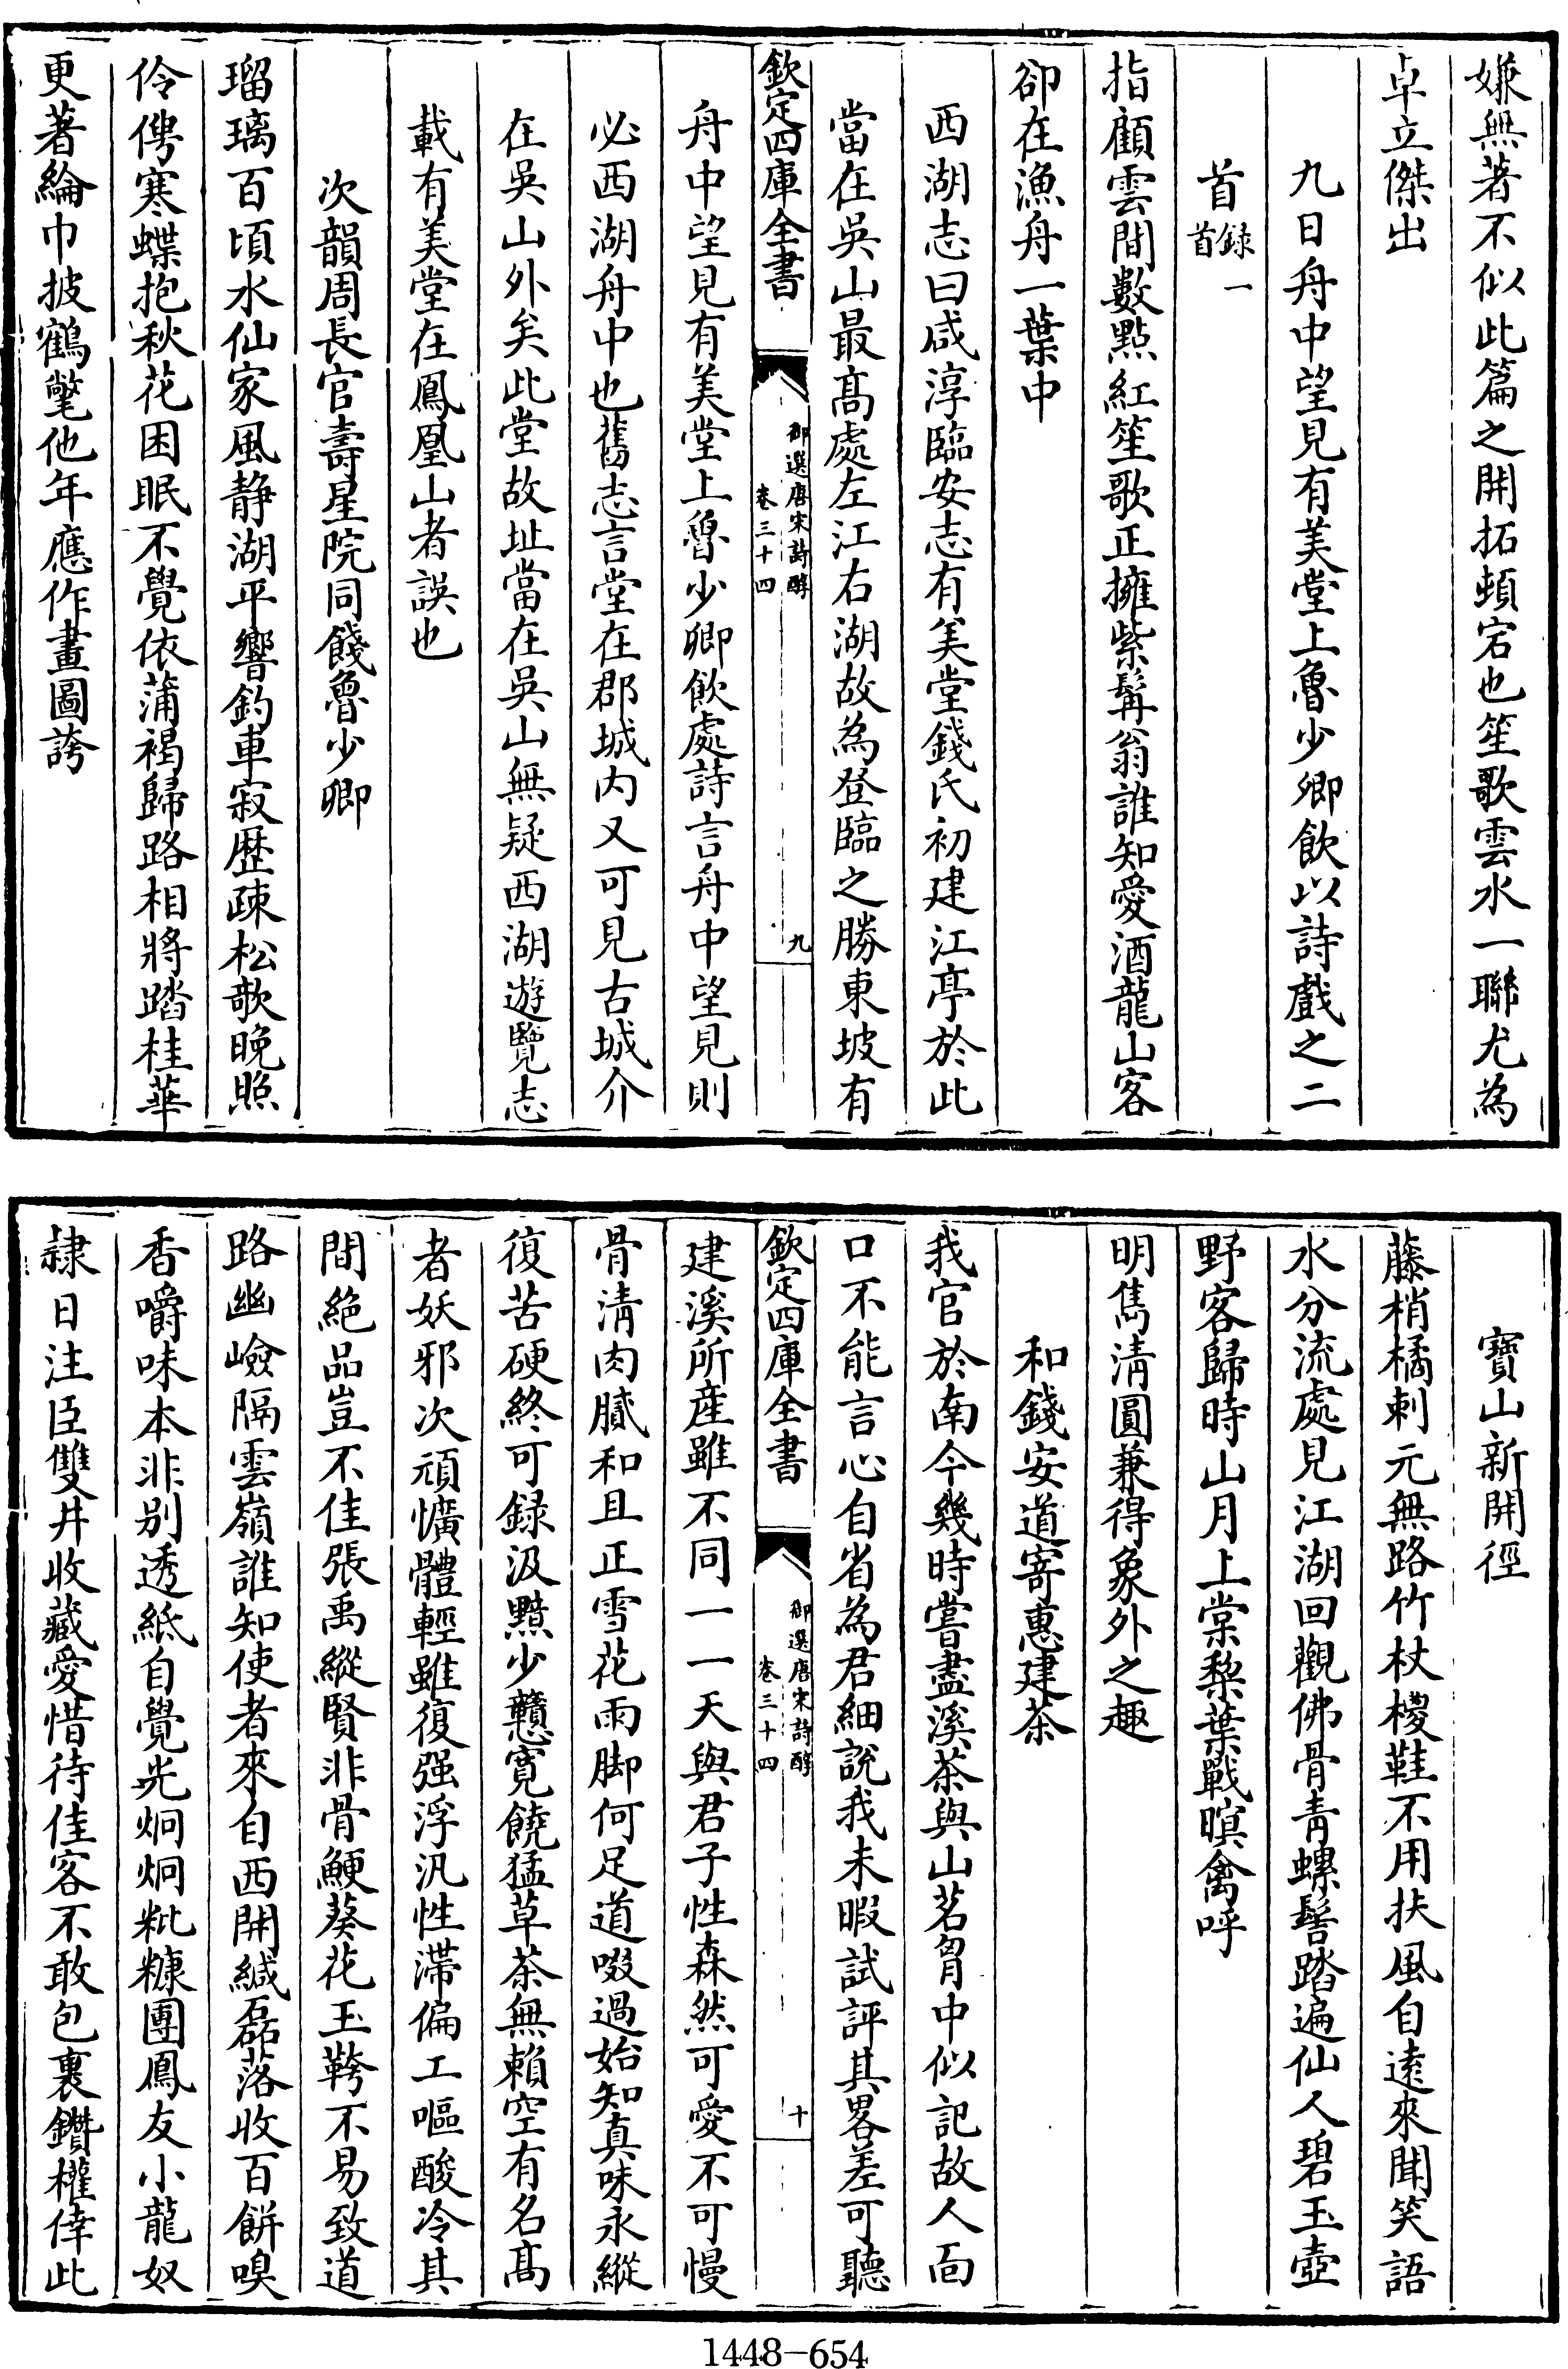 嫌無著不似此篇之開拓頓宕也笙歌雲水一聯尤為
卓立傑出
九日舟中望見有美堂上魯少卿飲以詩戲之二
首錄一首
指顧雲間數點紅笙歌正擁紫髯翁誰知愛酒龍山客
卻在漁舟一葉中
西湖志曰咸淳臨安志有美堂錢氏初建江亭於此
當在吳山最高處左江右湖故為登臨之勝東坡有
欽定四庫全書
御選唐宋詩醇
卷三十四
九
舟中望見有美堂上魯少卿飲處詩言舟中望見則
必西湖舟中也舊志言堂在郡城内又可見古城介
在吳山外矣此堂故址當在吳山無疑西湖遊覽志
載有美堂在鳳凰山者誤也
次韻周長官壽星院同餞魯少卿
瑠璃百頃水仙家風静湖平響釣車寂歴疎松欹晚照
伶俜寒蝶抱秋花困眠不覺依蒲褐歸路相將踏桂華
更著綸巾披鶴氅他年應作畫圖誇
寶山新開徑
藤梢橘刺元無路竹杖椶鞋不用扶風自遠來聞笑語
水分流處見江湖回觀佛骨青螺髻踏遍仙人碧玉壺
野客歸時山月上棠梨葉戰暝禽呼
明雋清圓兼得象外之趣
和錢安道寄惠建茶
我官於南今幾時嘗盡溪茶與山茗胷中似記故人面
口不能言心自省為君細説我未暇試評其畧差可聽
欽定四庫全書
御選唐宋詩醇
卷三十四
十
建溪所産雖不同一一天與君子性森然可愛不可慢
骨清肉膩和且正雪花雨脚何足道啜過始知真味永縱
復苦硬終可録汲黯少戇寛饒猛草茶無賴空有名高
者妖邪次頑懭體輕雖復强浮汎性滯偏工嘔酸冷其
間絶品豈不佳張禹縱賢非骨鯁葵花玉銙不易致道
路幽嶮隔雲嶺誰知使者來自西開緘磊落收百餅嗅
香嚼味本非别透紙自覺光炯炯粃糠團鳳友小龍奴
隷日注臣雙井收藏愛惜待佳客不敢包裹鑽權倖此
1448-654